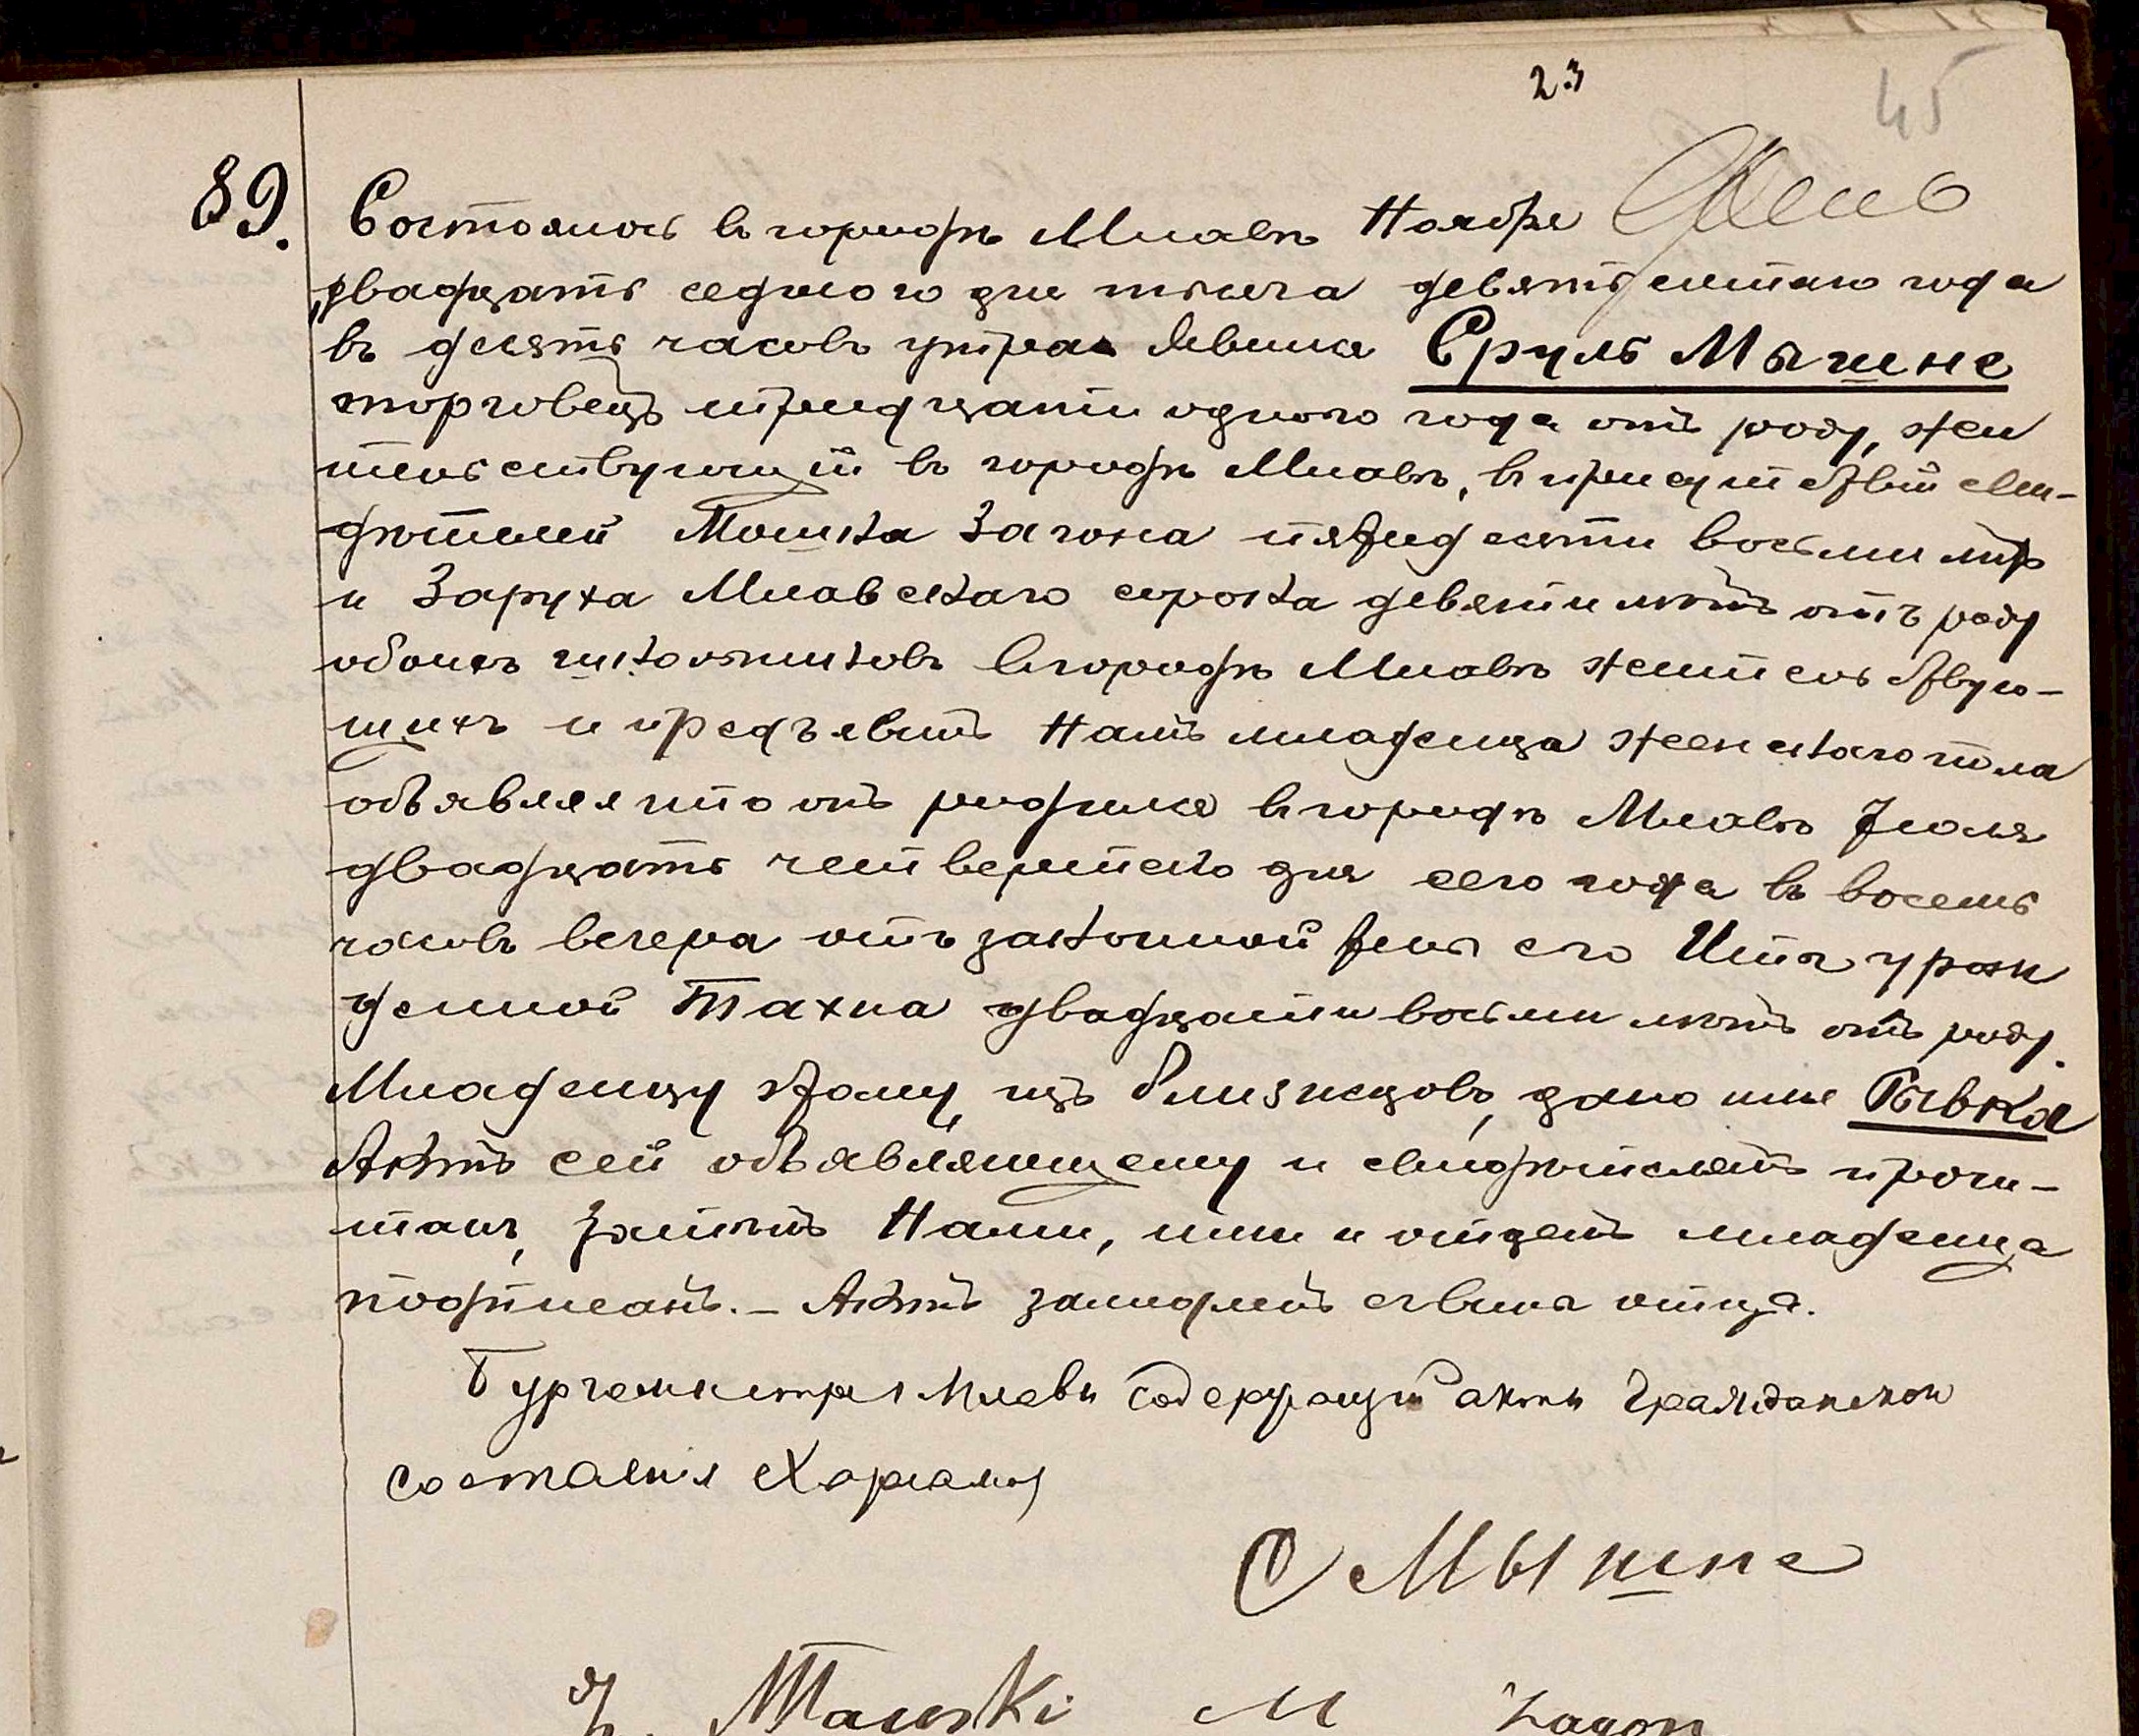 23
45
89.
Состоялось въ городѣ Млавѣ Ноября
двадцать седьмого дня тысяча девятьсотаго года
въ десять часовъ утра. Явился Сруль Мышне
торговецъ тридцати одного года отъ роду, жи
тельствующій въ городѣ Млавѣ, въ присутствіи сви-
дѣтелей Мошка Загона пятидесяти восьми лѣтъ
и Заруха Млавскаго сорока девяти лѣтъ отъ роду
обоихъ школьниковъ въ городѣ Млавѣ жительствую-
щихъ и предъявилъ Намъ младенца женскаго пола
объявляя что онъ родился въ городѣ Млавѣ Іюля
двадцать четвертаго дня сего года въ восемь
часовъ вечера отъ законной жены его Ита урож
денной Тахна двадцати восьми лѣтъ отъ роду.
Младенцу этому, изъ близнецовъ, дано имя Рывка
Актъ сей объявляющему и свидѣтелямъ прочи-
танъ, затѣмъ Нами, ими и отцемъ младенца
подписанъ. – Актъ замедленъ съ вины отца.
Бургомистръ г Млавы Содержащій акты Гражданскаго
состоянія
С Мышне
Z. Mławski M Zagon